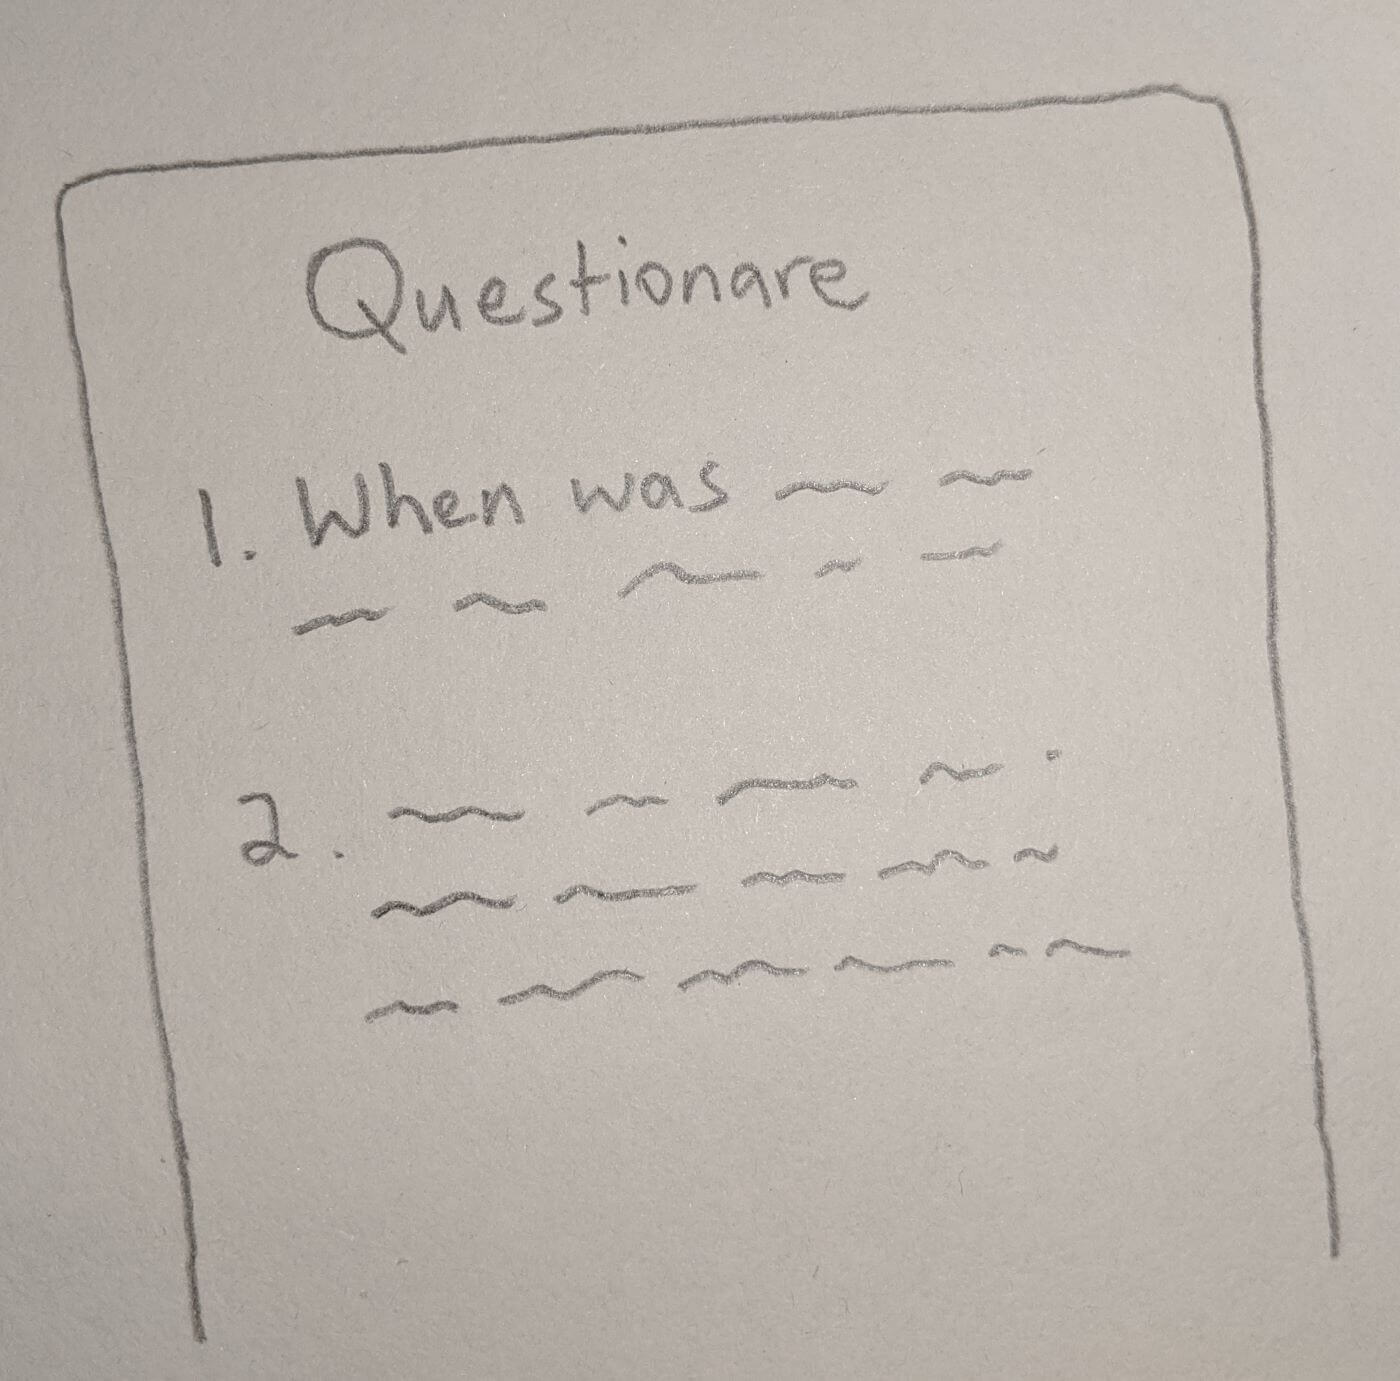 Questionare
1. When was
2.